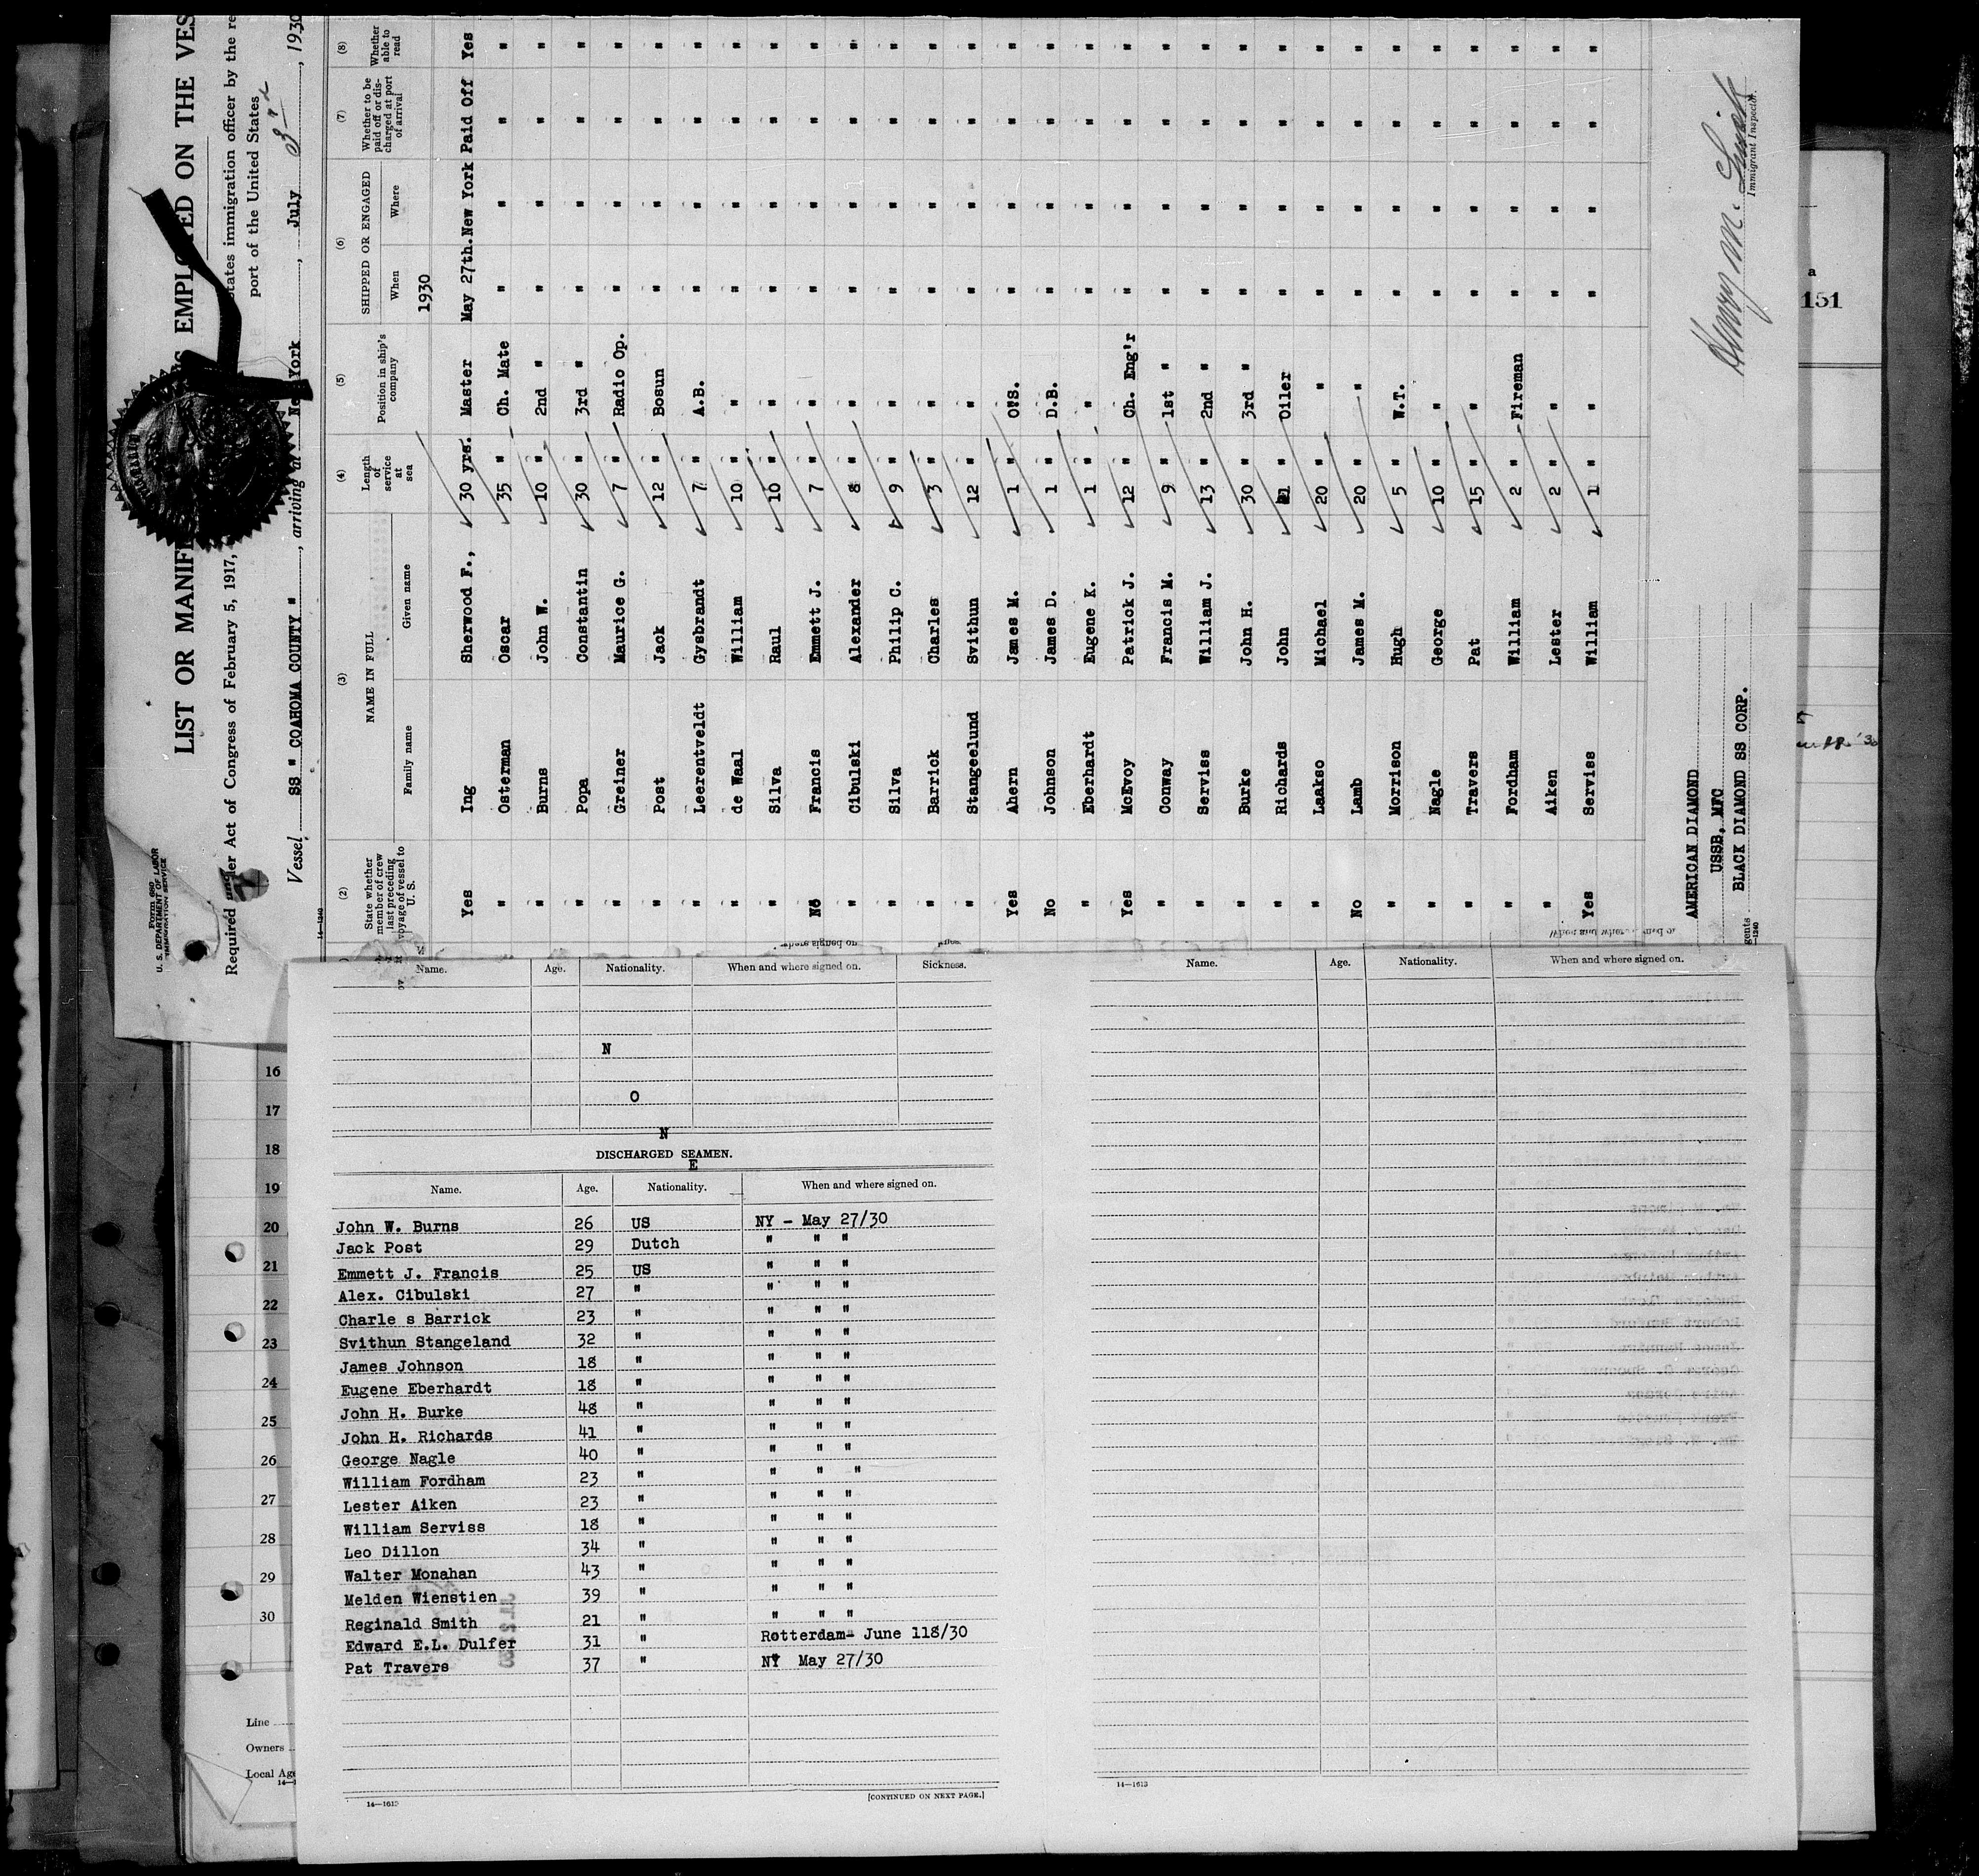 Form 680
U. S. DEPARTMENT OF LABOR
IMMIGRATION SERVICE
LIST OR MANIFE EMPLOYED ON THE VES
Required under Act of Congress of February 5, 1917, States immigration officer by the re
port of the United States
Vessel SS " COAHOMA COUNTY ", arriving at New York, July 1930
14-1240
(2) (3) (4) (5) (6) (7) (8)
State whether member of crew last preceding voyage of vessel to U. S. NAME IN FULL Length of service at sea Position in ship's company SHIPPED OR ENGAGED Whether to be paid off or discharged at port of arrival Whether able to read
Family name Given name When Where
1930
Yes Ing Sherwood F., 30 yrs. Master May 27th. New York Paid Off Yes
" Osterman Oscar 35 " Ch. Mate " " " "
" Burns John W. 10 " 2nd " " " " "
" Popa Constantin 30 " 3rd " " " " "
" Greiner Maurice G. 7 " Radio Op. " " " "
" Post Jack 12 " Bosun " " " "
" Leerentveldt Gysbrandt 7 " A.B. " " " "
" de Waal William 10 " " " " " "
" Silva Raul 10 " " " " " "
No Francis Emmett J. 7 " " " " " "
" Cibulski Alexander 8 " " " " " "
" Silva Philip C. 9 " " " " " "
" Barrick Charles 3 " " " " " "
" Stangeelund Svithun 12 " " " " " "
Yes Ahern James M. 1 " O.S. " " " "
No Johnson James D. 1 " D.B. " " " "
" Eberhardt Eugene K. 1 " " " " " "
Yes McEvoy Patrick J. 12 " Ch. Eng'r " " " "
" Conway Francis M. 9 " 1st " " " " "
" Serviss William J. 13 " 2nd " " " " "
" Burke John H. 30 " 3rd " " " " "
" Richards John " Oiler " " " "
" Laakso Michael 20 " " " " " "
No Lamb James M. 20 " " " " " "
" Morrison Hugh 5 " W.T. " " " "
" Nagle George 10 " " " " " "
" Travers Pat 15 " " " " " "
" Fordham William 2 " Fireman " " " "
" Aiken Lester 2 " " " " " "
Yes Serviss William 1 " " " " " "
AMERICAN DIAMOND
USSB, MFC
BLACK DIAMOND SS CORP.
gents
Henry M. Smith
Immigrant Inspector.
a
151
Name. Age. Nationality. When and where signed on. Sickness.
N
O
N
E
DISCHARGED SEAMEN.
Name. Age. Nationality. When and where signed on.
John W. Burns 26 US NY - May 27/30
Jack Post 29 Dutch " " "
Emmett J. Francis 25 US " " "
Alex. Cibulski 27 " " " "
Charle s Barrick 23 " " " "
Svithun Stangeland 32 " " " "
James Johnson 18 " " " "
Eugene Eberhardt 18 " " " "
John H. Burke 48 " " " "
John H. Richards 41 " " " "
George Nagle 40 " " " "
William Fordham 23 " " " "
Lester Aiken 23 " " " "
William Serviss 18 " " " "
Leo Dillon 34 " " " "
Walter Monahan 43 " " " "
Melden Wienstien 39 " " " "
Reginald Smith 21 " " " "
Edward E.L. Dulfer 31 " Rotterdam- June 118/30
Pat Travers 37 " NY May 27/30
14-1613
[CONTINUED ON NEXT PAGE.]
Name. Age. Nationality. When and where signed on.
14-1613
16
17
18
19
20
21
22
23
24
25
26
27
28
29
30
Line
Owners
Local Age